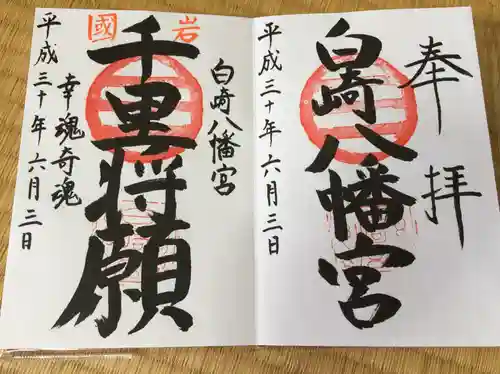 奉拝
白崎八幡宮
平成三十年六月三日
岩國
白崎八幡宮
千里将願
幸魂奇魂
平成三十年六月三日